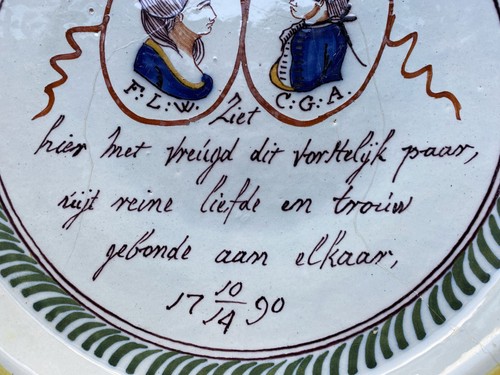 F: L: W. Ziet C: G: A.
hier met vreugd dit vorstelijk paar,
uijt reine liefde en trouw
gebonde aan elkaar,
17 10/14 90